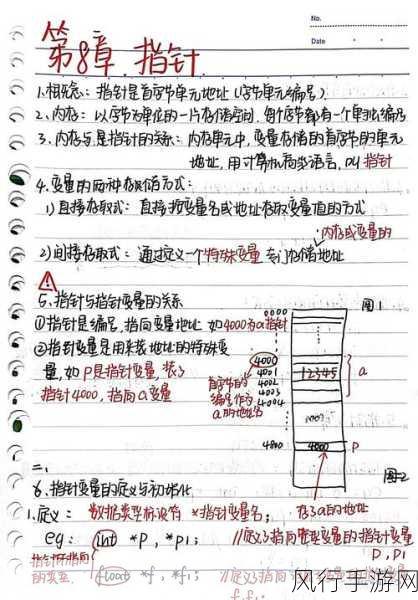 No.
Date
第8章 指针
1.相关概念：指针是首字节单元地址(字节单元编号).
2.内存：以字节为单位的一片存储空间，每个字节都有一个单独编号
3.内存与是指针的关系：内存单元中，变量存储的首字节的单元
地址，用计算机语言，叫指针
4.变量的两种存储方式：
1)直接存取式：直接按变量名或地址存取变量值的方式
内存或变量的
2)间接存取式：通过定义一个特殊变量专门存储地址
5.指针与指针变量的关系
图1
①指针是编号，指向变量地址 如4000为a指针
②指针变量是用来装地址的特殊变
量，如P是指针变量，装了
指针4000，指向a变量
0000
4000
4001
4002
4003
4004
4800
首字节的
编号作为
a的地址名
12345
a
4000
P
图2
存了a的地址
二、
6.指针变量的定义与初始化
1.定义：数据类型标识符 *指针变量名；
eg: int *P, *P1; //定义了指向整型变量的指针变量
P, P1
指针所指向
的类型
float *f, *f1; //定义了指向
f, f1
风行手游网